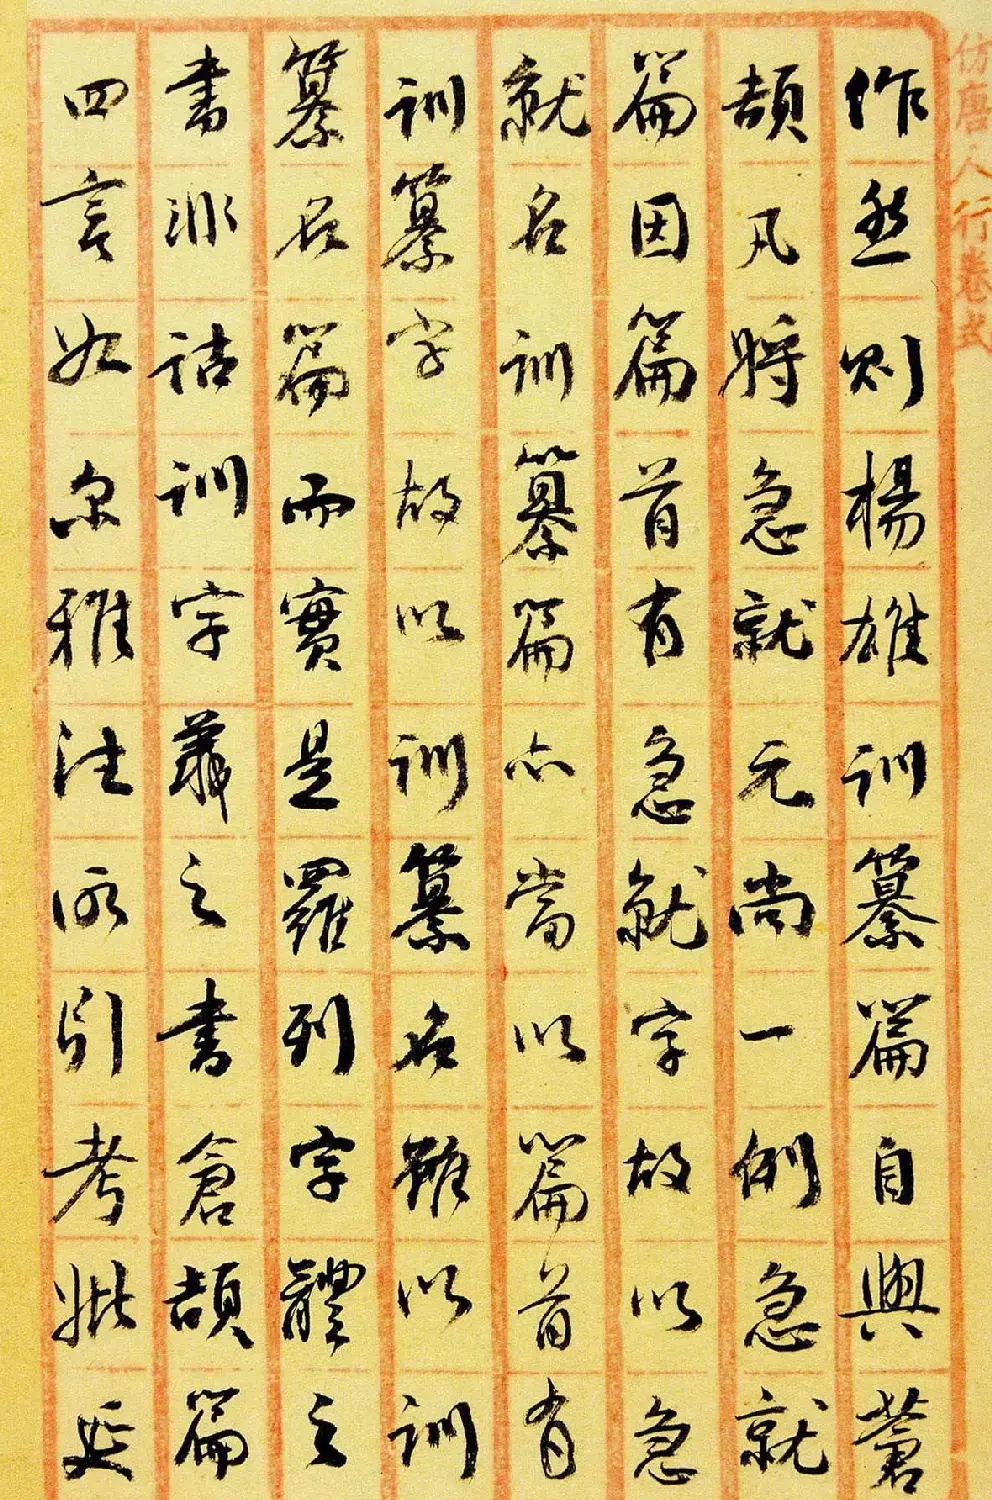 仿唐人行卷式
作然則楊雄訓纂篇自與蒼
頡凡將急就元尚一例急就
篇因篇首有急就字故以急
就名訓纂篇亦當以篇首有
訓纂字故以訓纂名雖以訓
纂名篇而實是羅列字體之
書非詁訓字義之書倉頡篇
四言如爾雅注所引考妣延